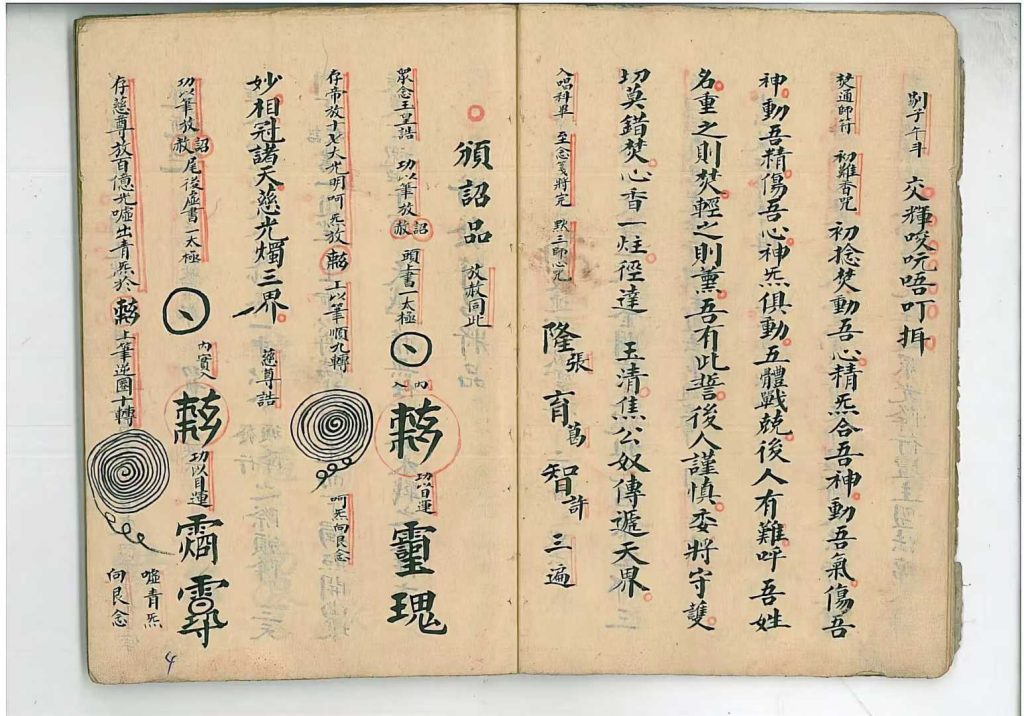 剔子午斗　交輝唆吭唔叮揖
焚通師符　初難香咒　初捻焚動吾心精炁合吾神動吾氣傷吾
神動吾精傷吾心神炁俱動五體戰兢後人有難呼吾姓
名重之則焚輕之則薰吾有此誓後人謹慎委將守護
切莫錯焚心香一炷徑達　玉清焦公奴傳遞天界
入唱科畢　至念箋將完　默三師咒　隆張育萬智許　三遍
頒詔品　放赦同此
眾念玉皇誥　功以筆放詔赦　頭書一太極　內入　功以目運
存帝放十七大光明呵炁放　上以筆順九轉　呵炁向艮念
妙相冠諸天慈光燭三界　慈尊誥
功以筆放詔赦尾後虛書一太極　內賓入　功以目運
存慈尊放百億光噓出青炁於　上筆逆圈十轉　噓青炁向艮念
4